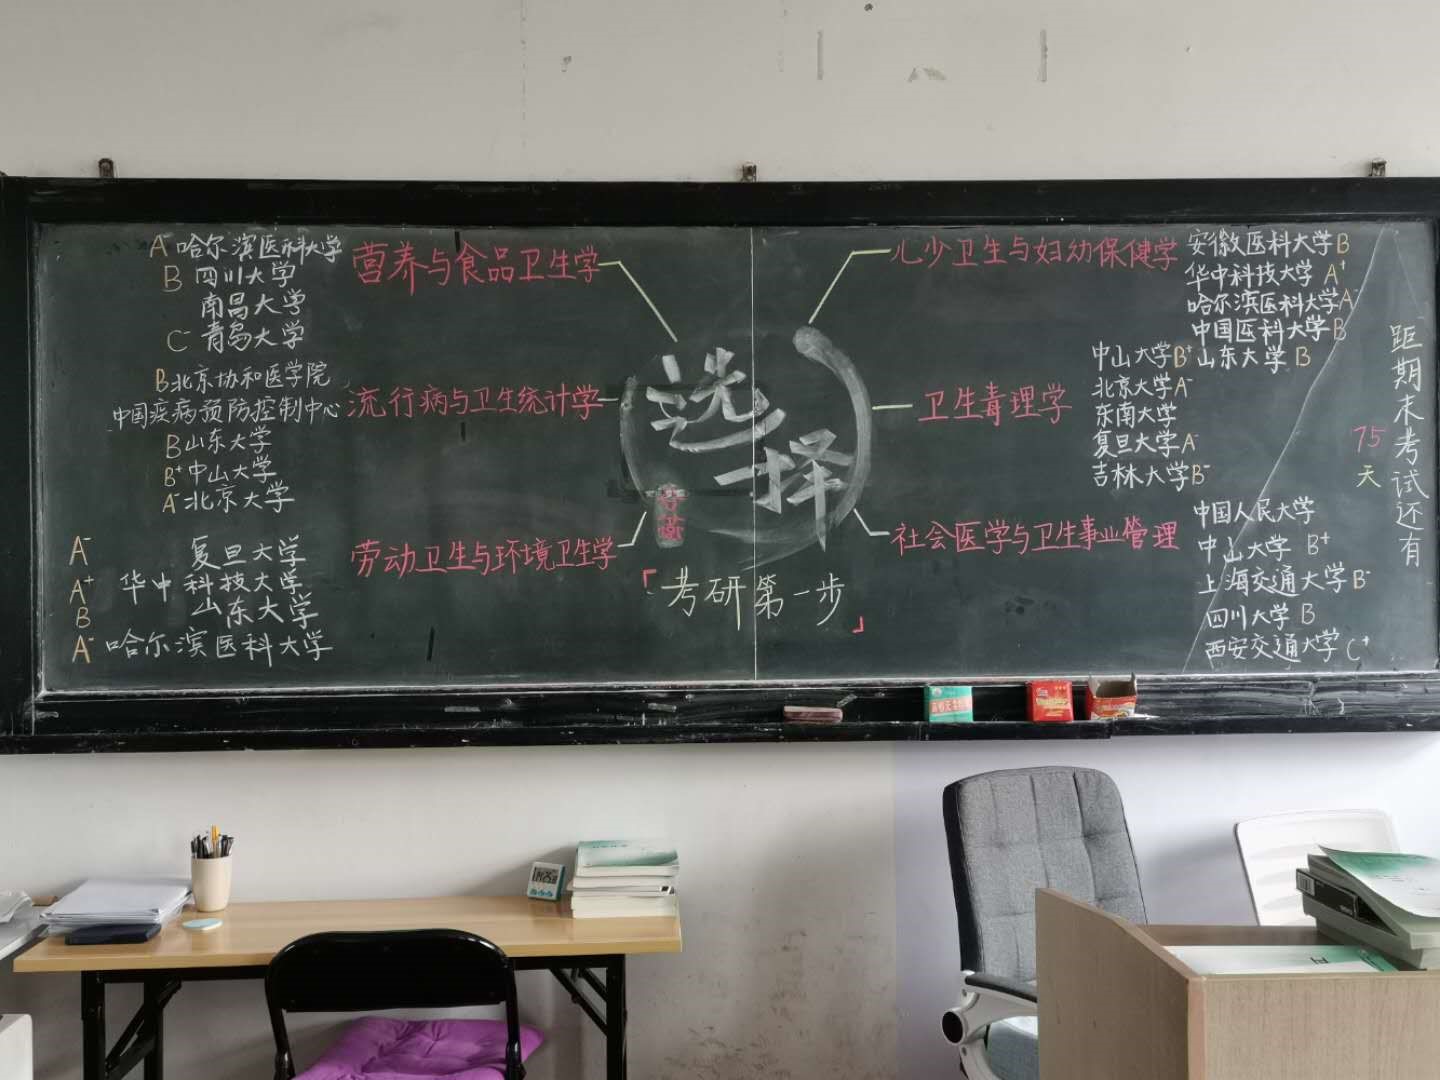 A⁻ 哈尔滨医科大学
B 四川大学
南昌大学
C⁻ 青岛大学
营养与食品卫生学
B 北京协和医学院
中国疾病预防控制中心
B 山东大学
B⁺ 中山大学
A⁻ 北京大学
流行病与卫生统计学
A⁻ 复旦大学
A⁺ 华中科技大学
B 山东大学
A⁻ 哈尔滨医科大学
劳动卫生与环境卫生学
选择
「考研第一步」
儿少卫生与妇幼保健学
安徽医科大学 B
华中科技大学 A⁺
哈尔滨医科大学 A⁻
中国医科大学 B
山东大学 B
卫生毒理学
中山大学 B⁺
北京大学 A⁻
东南大学
复旦大学 A⁻
吉林大学 B⁻
社会医学与卫生事业管理
中国人民大学
中山大学 B⁺
上海交通大学 B⁻
四川大学 B
西安交通大学 C⁺
距期末考试还有
75
天